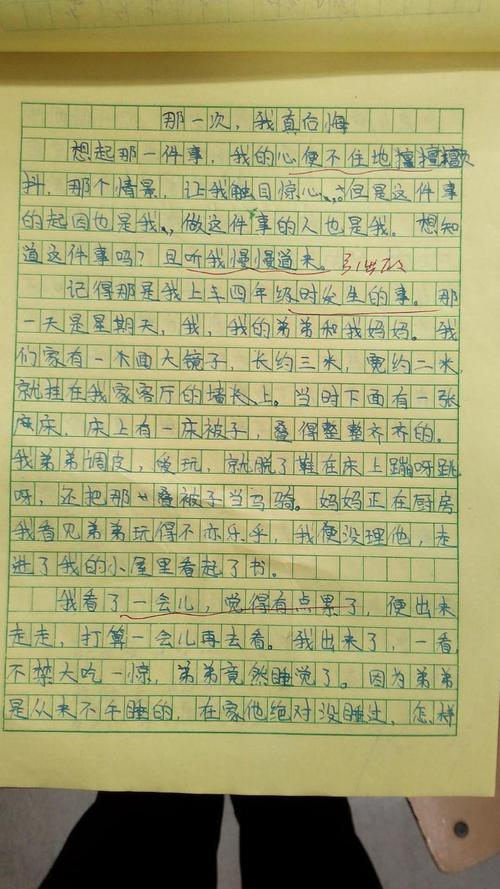 那一次,我真后悔
想起那一件事,我的心便不住地
抖,那个情景,让我触目惊心。但是这件事
的起因也是我,做这件事的人也是我。想知
道这件事吗?且听我慢慢道来。
记得那是我上车四年级时发生的事。那
一天是星期天,我,我的弟弟和我妈妈。我
们家有一木面大镜子,长约三米,宽约二米,
就挂在我家客厅的墙长上。当时下面有一张
床,床上有一床被子,叠得整整齐齐的。
我弟弟调皮,爱玩,就脱了鞋在床上蹦呀跳
呀,还把那叠被子当马骑。妈妈正在厨房
我看见弟弟玩得不亦乐乎,我便没理他,走
进了我的小屋里看起了书。
我看了一会儿,觉得有点累了,便出来
走走,打算一会儿再去看。我出来了,一看,
不禁大吃一惊,弟弟竟然睡觉了。因为弟弟
是从来不午睡的,在家他绝对没睡过,怎样